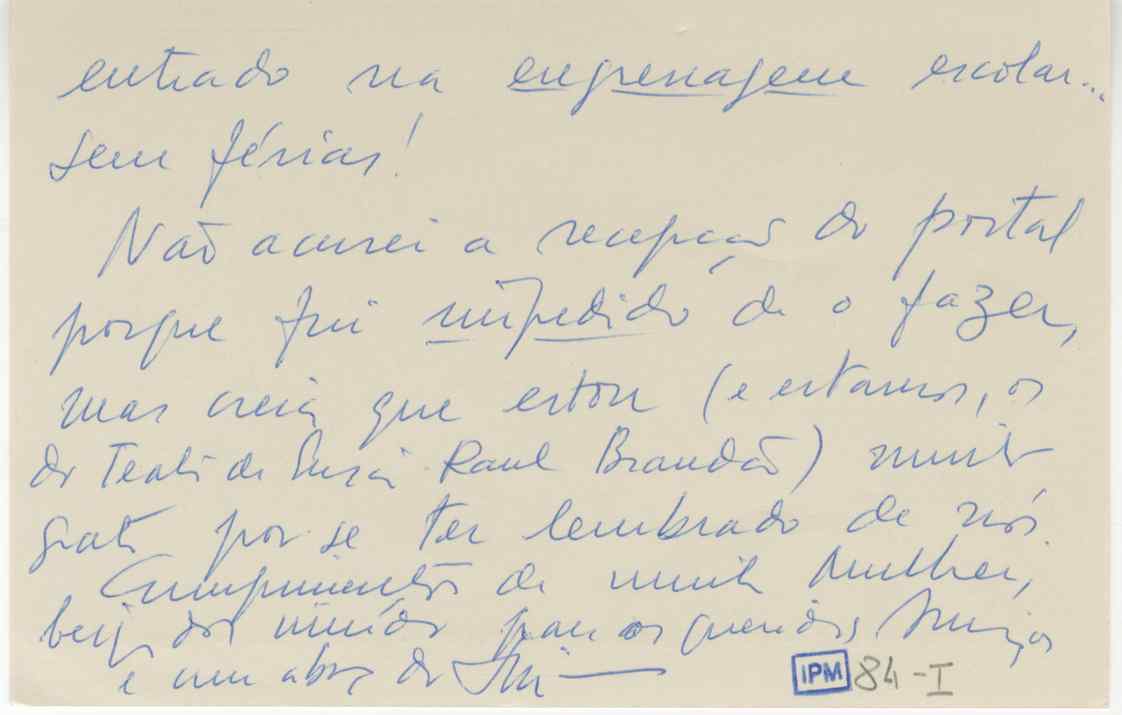 entrado na engrenagem escolar...
sem férias!
Não acusei a recepção do postal
porque fui impedido de o fazer,
mas creia que estou (e estamos, os
do Teatro de Raul Brandão) muito
grato por se ter lembrado de nós.
Cumprimentos de minha Mulher,
beijos dos miúdos para os queridos Amigos
e um abraço do
IPM 84-I